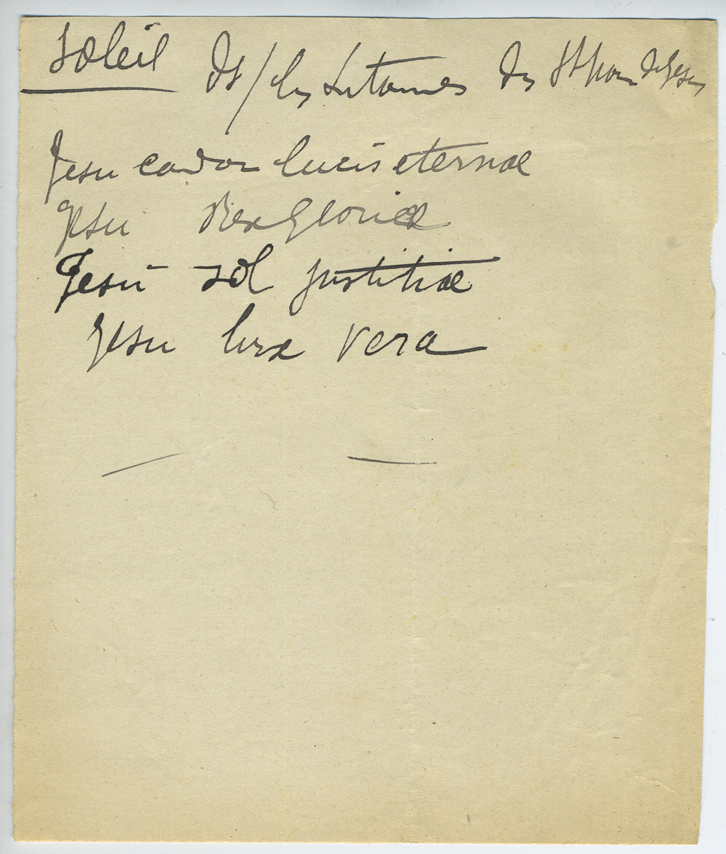 Soleil ds/les Litanies du St Nom de Jesus
Jesu candor lucis eternæ
Jesu Rex Gloriæ
Jesu sol justitiæ
Jesu lux vera